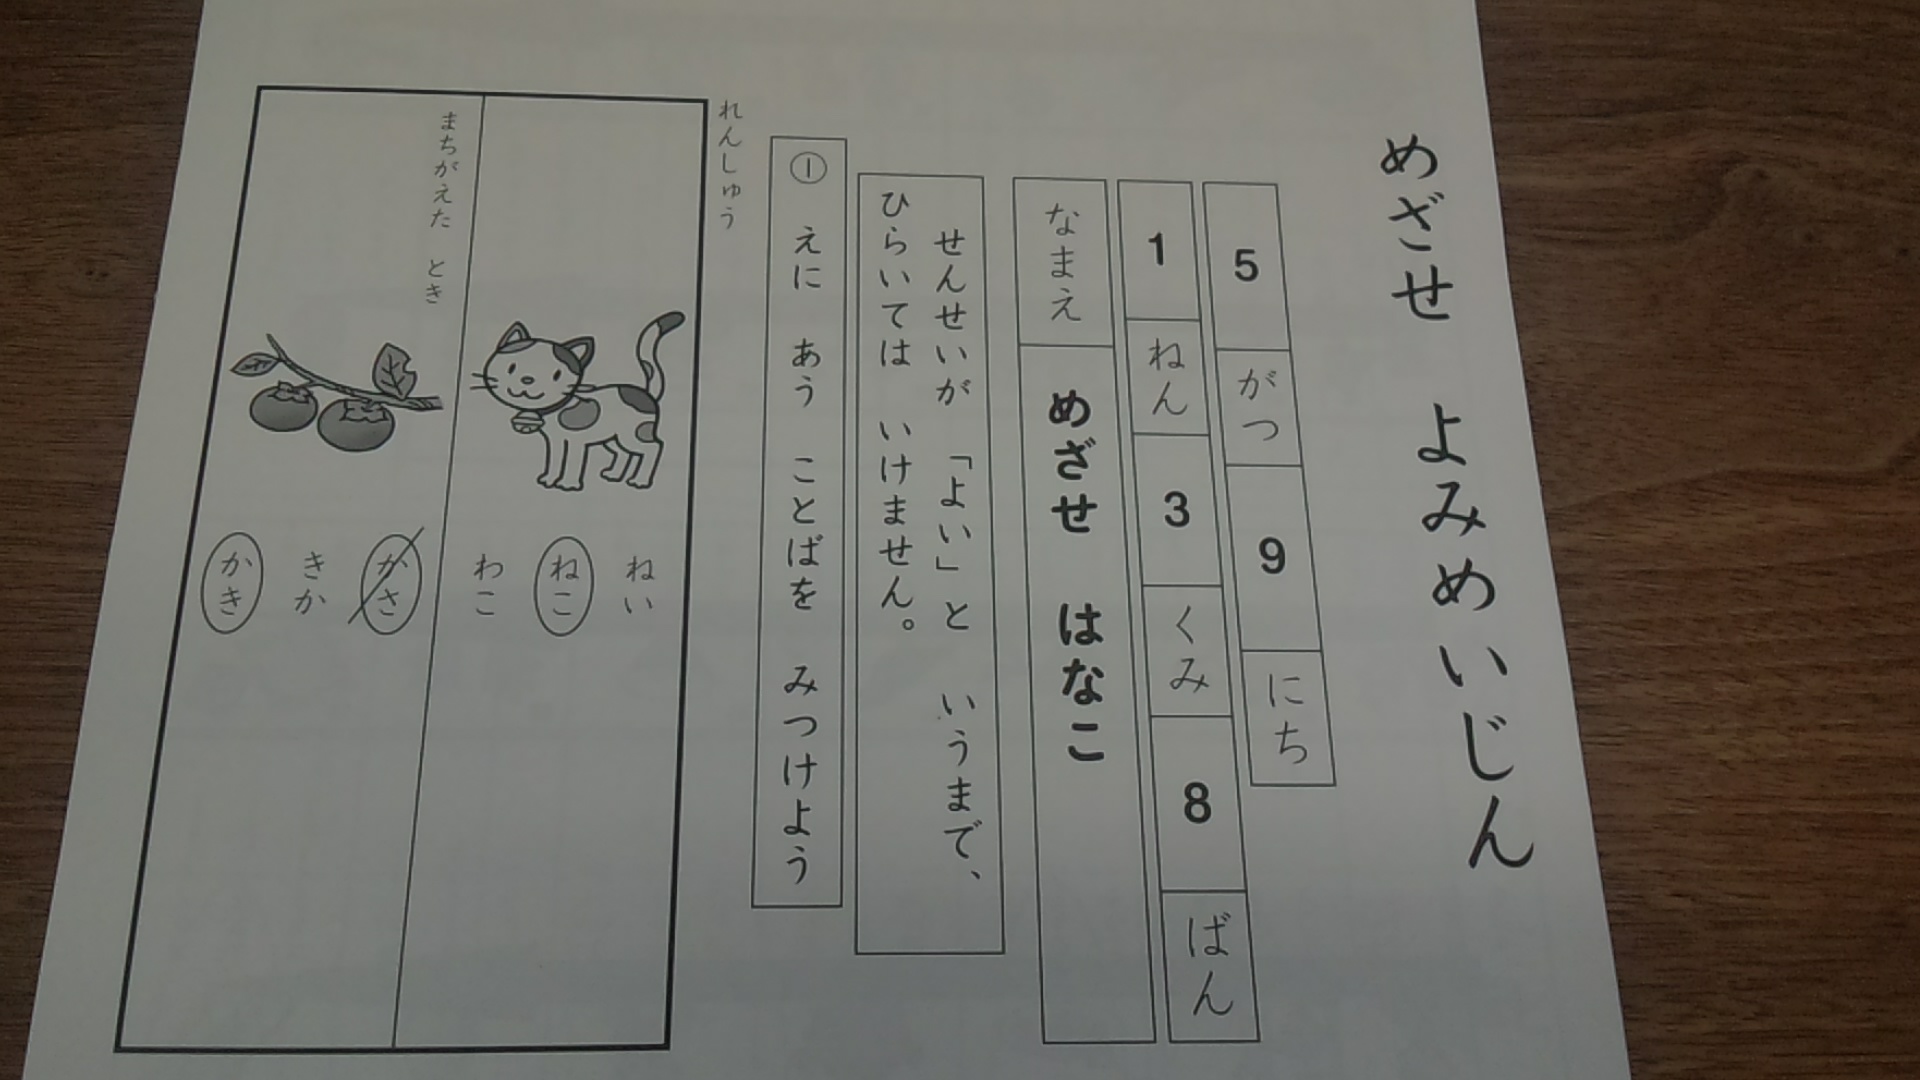 めざせ　よみめいじん
5 がつ 9 にち
1 ねん 3 くみ 8 ばん
なまえ めざせ　はなこ
せんせいが　「よい」と　いうまで、
ひらいては　いけません。
① えに　あう　ことばを　みつけよう
れんしゅう
ねい
ねこ
わこ
まちがえた　とき
かさ
きか
かき